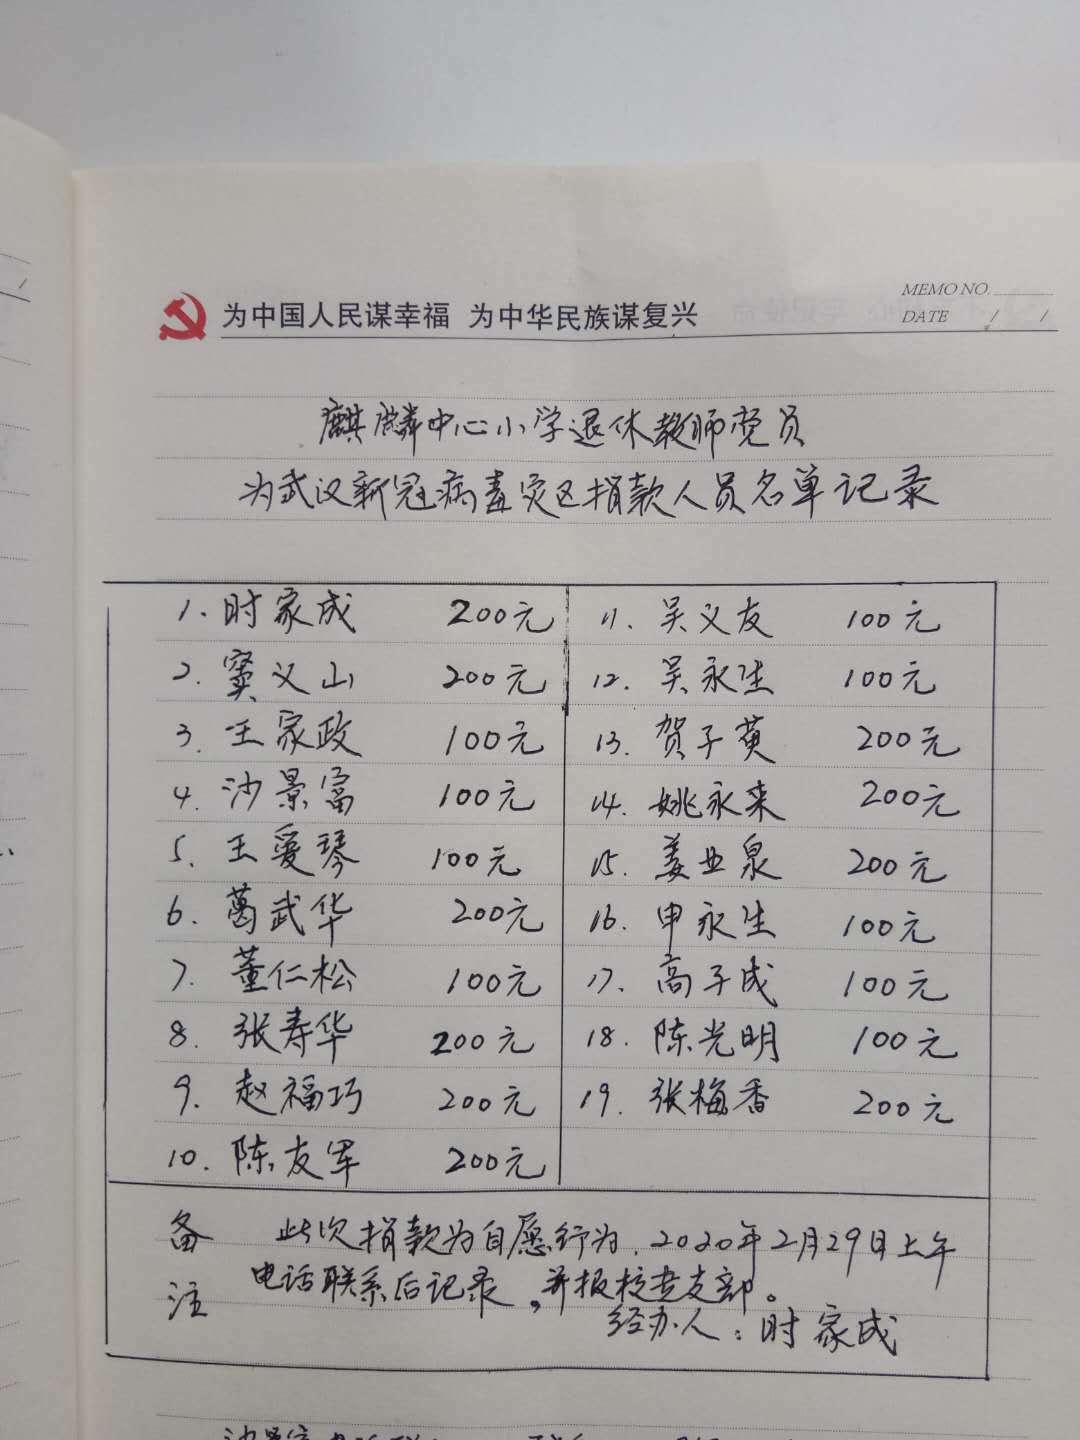 为中国人民谋幸福 为中华民族谋复兴
MEMO NO.
DATE / /
麒麟中心小学退休教师党员
为武汉新冠病毒灾区捐款人员名单记录
1. 时家成 200元
2. 窦义山 200元
3. 王家政 100元
4. 沙景富 100元
5. 王爱琴 100元
6. 葛武华 200元
7. 董仁松 100元
8. 张寿华 200元
9. 赵福巧 200元
10. 陈友军 200元
11. 吴义友 100元
12. 吴永生 100元
13. 贺子英 200元
14. 姚永来 200元
15. 姜业泉 200元
16. 申永生 100元
17. 高子成 100元
18. 陈光明 100元
19. 张梅香 200元
备注
此次捐款为自愿行为,2020年2月29日上午
电话联系后记录,并报校党支部。
经办人:时家成